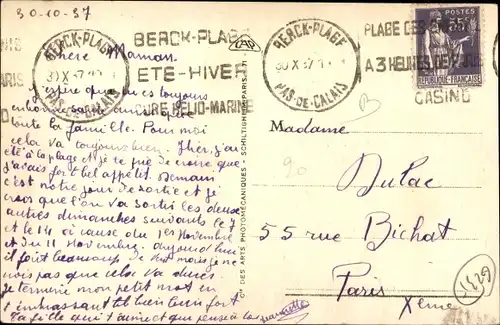 30-10-37
BERCK-PLAGE
30 X 37
PAS-DE-CALAIS
BERCK-PLAGE
ETE-HIVER
CURE HELIO-MARINE
BERCK-PLAGE
30 X 37
PAS-DE-CALAIS
PLAGE DES
A 3 HEURES DE PARIS
CASINO
POSTES
REPUBLIQUE FRANÇAISE
chère Maman.
J'espère que tu es toujours
en bonne santé ainsi que
toute la famille. Pour moi
cela va toujours bien. Hier, j'ai
été à la plage et je te prie de croire que
j'avais fort bel appétit. Demain
c'est notre jour de sortie et je
crois que l'on va sortir les deux
autres dimanches suivants le 7
et le 14 à cause du 1er Novembre
et du 11 Novembre. aujourd'hui
il fait beaucoup de vent mais je ne
vois pas que cela va durer.
Je termine mon petit mot en
t'embrassant tel bien bien fort
Ta fille qui t'aime et qui pense à toi
Jeannette
Cie DES ARTS PHOTOMÉCANIQUES - SCHILTIGHEIM - PARIS
B
Madame
20
Dulac
55 rue Bichat
Paris
Xème